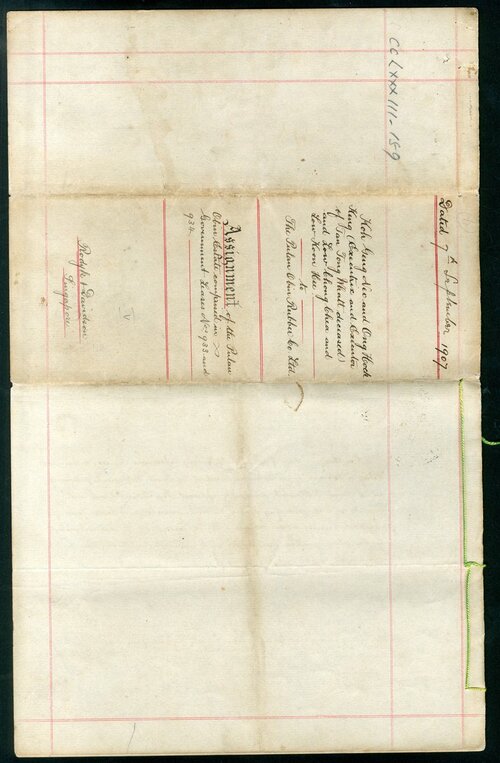 CCLXXXIII-159
Dated 7th September 1907
Koh Geng Neo and Ong Hock
King (Executrix and Executor
of Tan Tong Whatt deceased)
and Low Chong Chea and
Low Koon Hee
to
The Pulau Obin Rubber Co Ltd.
Assignment of the Pulau
Obin Estate comprised in
Government Leases Nos 933 and
934.
Rodyk & Davidson
Singapore